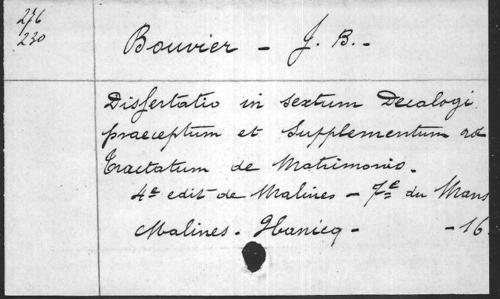 276
230
Bouvier - J. B. -
Dissertatio in sextum Decalogi
praeceptum et Supplementum ad
Tractatum de Matrimonio.
4e edit de Malines - 7e du Mans
Malines - Hanicq - - 16.